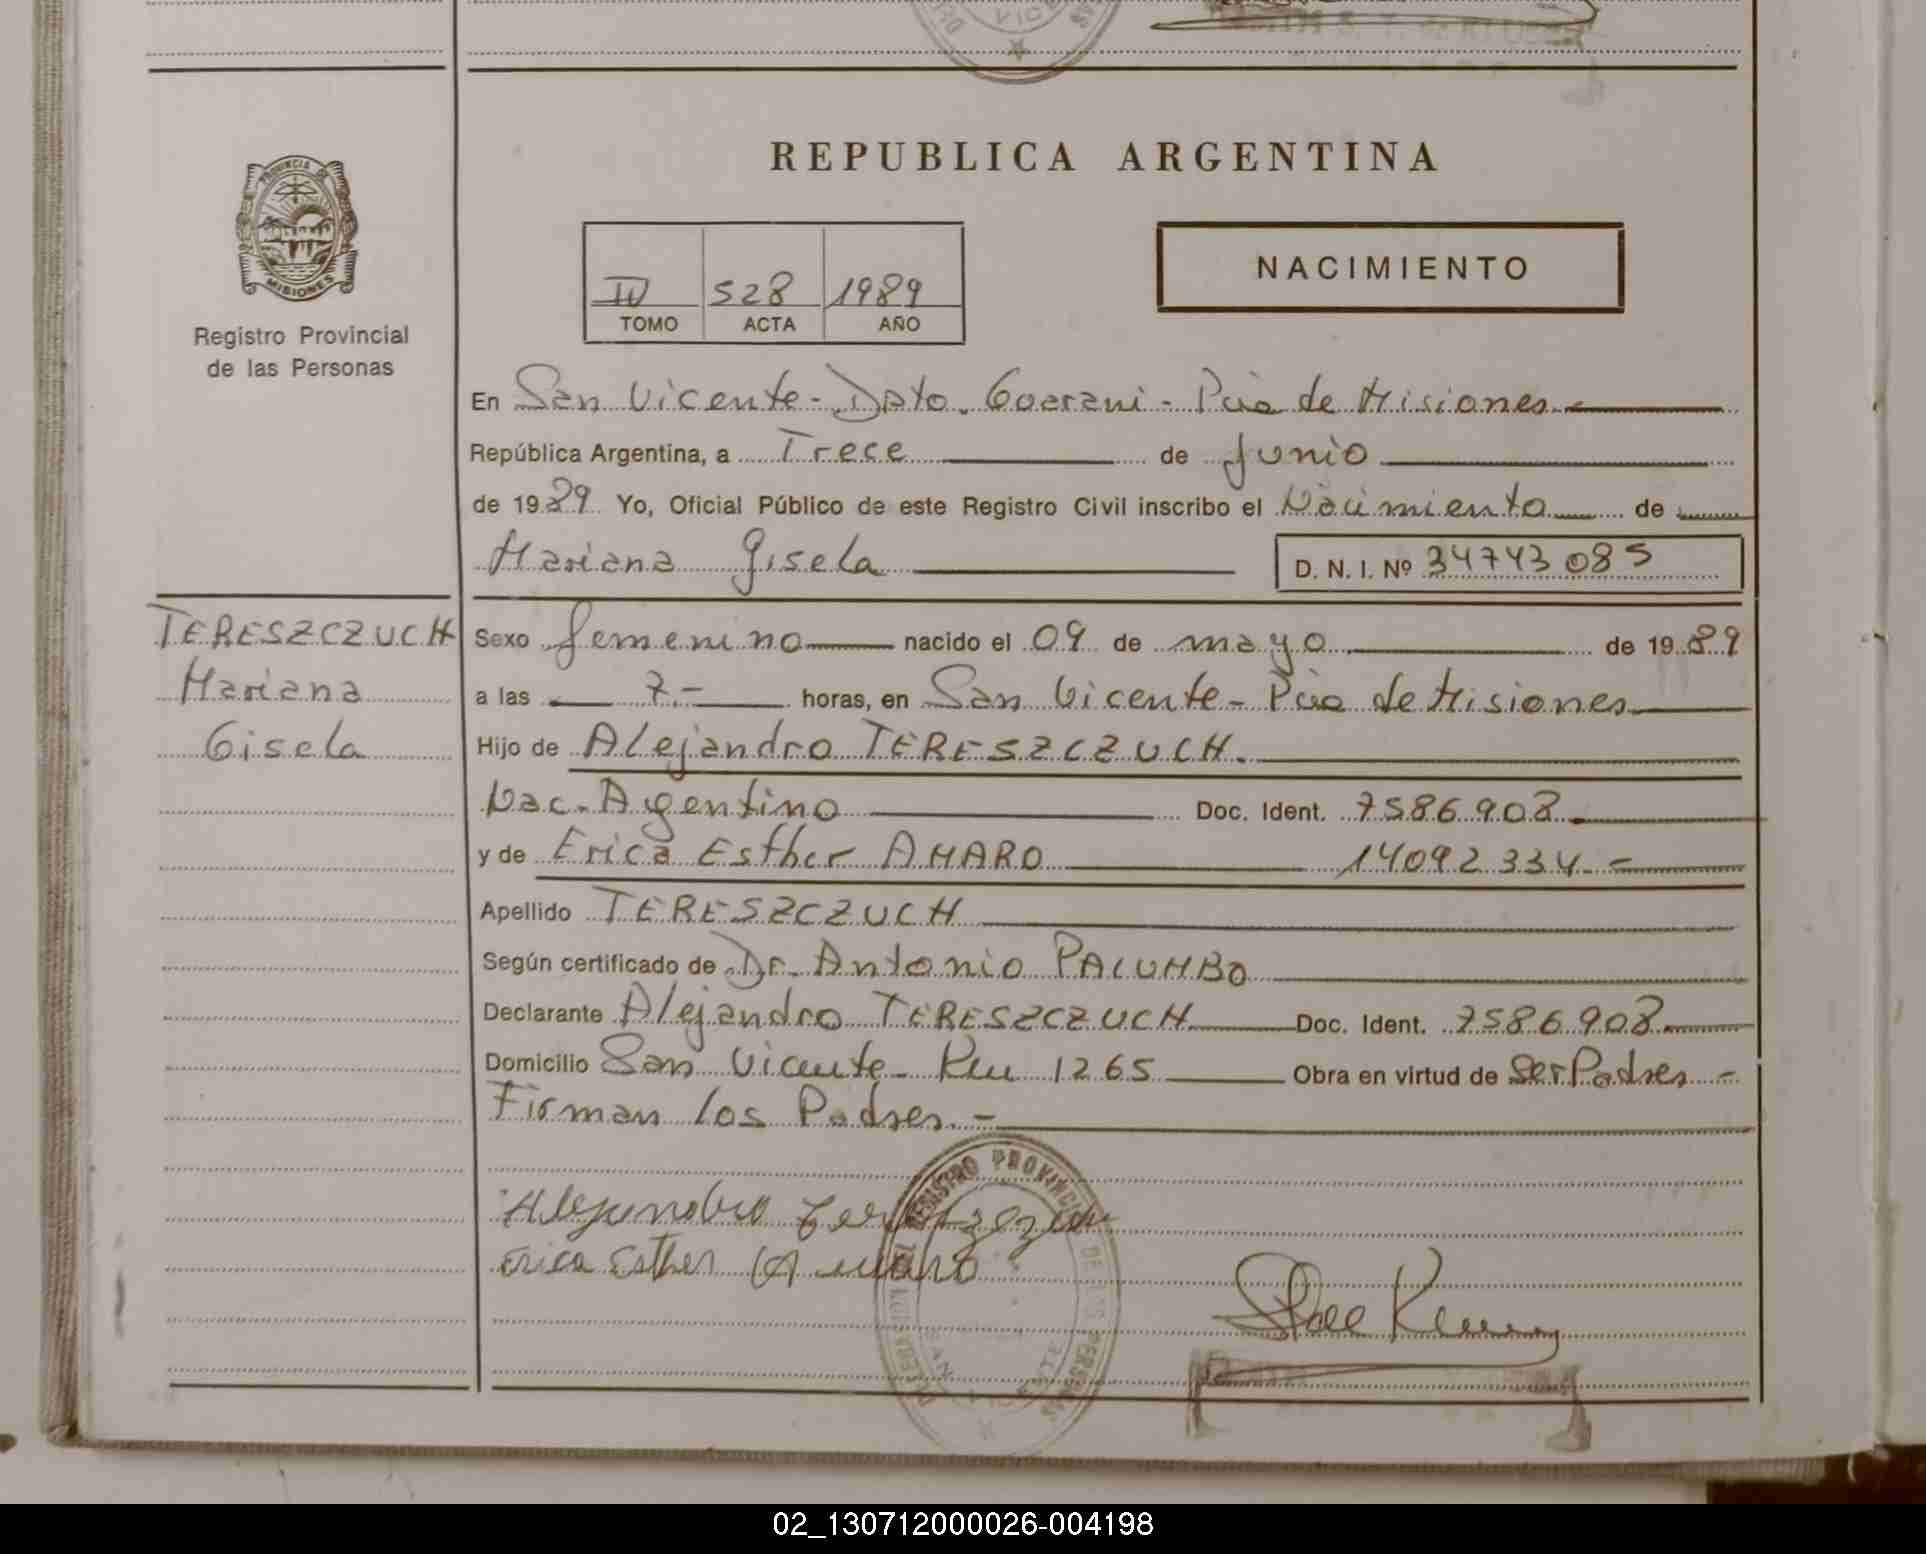 REPUBLICA ARGENTINA
PROVINCIA DE
MISIONES
Registro Provincial
de las Personas
IV 528 1989
TOMO ACTA AÑO
NACIMIENTO
En San Vicente - Dpto. Guarani - Pcia de Misiones
República Argentina, a Trece de Junio
de 1989 Yo, Oficial Público de este Registro Civil inscribo el Nacimiento de
Mariana Gisela D. N. I. Nº 34743085
TERESZCZUCH
Mariana
Gisela
Sexo femenino nacido el 09 de mayo de 1989
a las 7- horas, en San Vicente - Pcia de Misiones
Hijo de Alejandro TERESZCZUCH.
Nac. Argentino Doc. Ident. 7586908
y de Erica Esther AMARO 14092334.-
Apellido TERESZCZUCH
Según certificado de Dr. Antonio PALUMBO
Declarante Alejandro TERESZCZUCH Doc. Ident. 7586908
Domicilio San Vicente - Km 1265 Obra en virtud de Ser Padres -
Firman los Padres. -
REGISTRO PROVINCIAL DE LAS PERSONAS
SAN VICENTE
Erica Esther Amaro
02_130712000026-004198